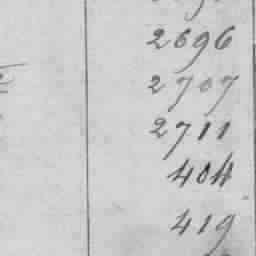 2696
2707
2711
404
419